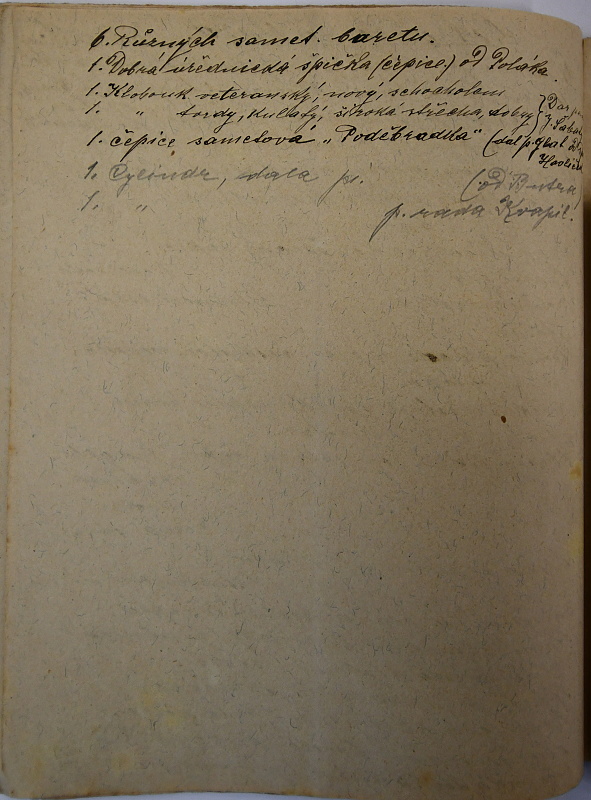 6. Různých samet. baretu.
1. Dobrá úřednická špička (čepice) od Poláka.
1. Klobouk veteranský, nový, s chocholem
1. " tvrdý, kullatý, široká střecha, dobrý } Dar p.
1. čepice sametová „Poděbradka" (dal p.
1. Cylindr, dala pí. (od
1. " p. rada Kvapil.